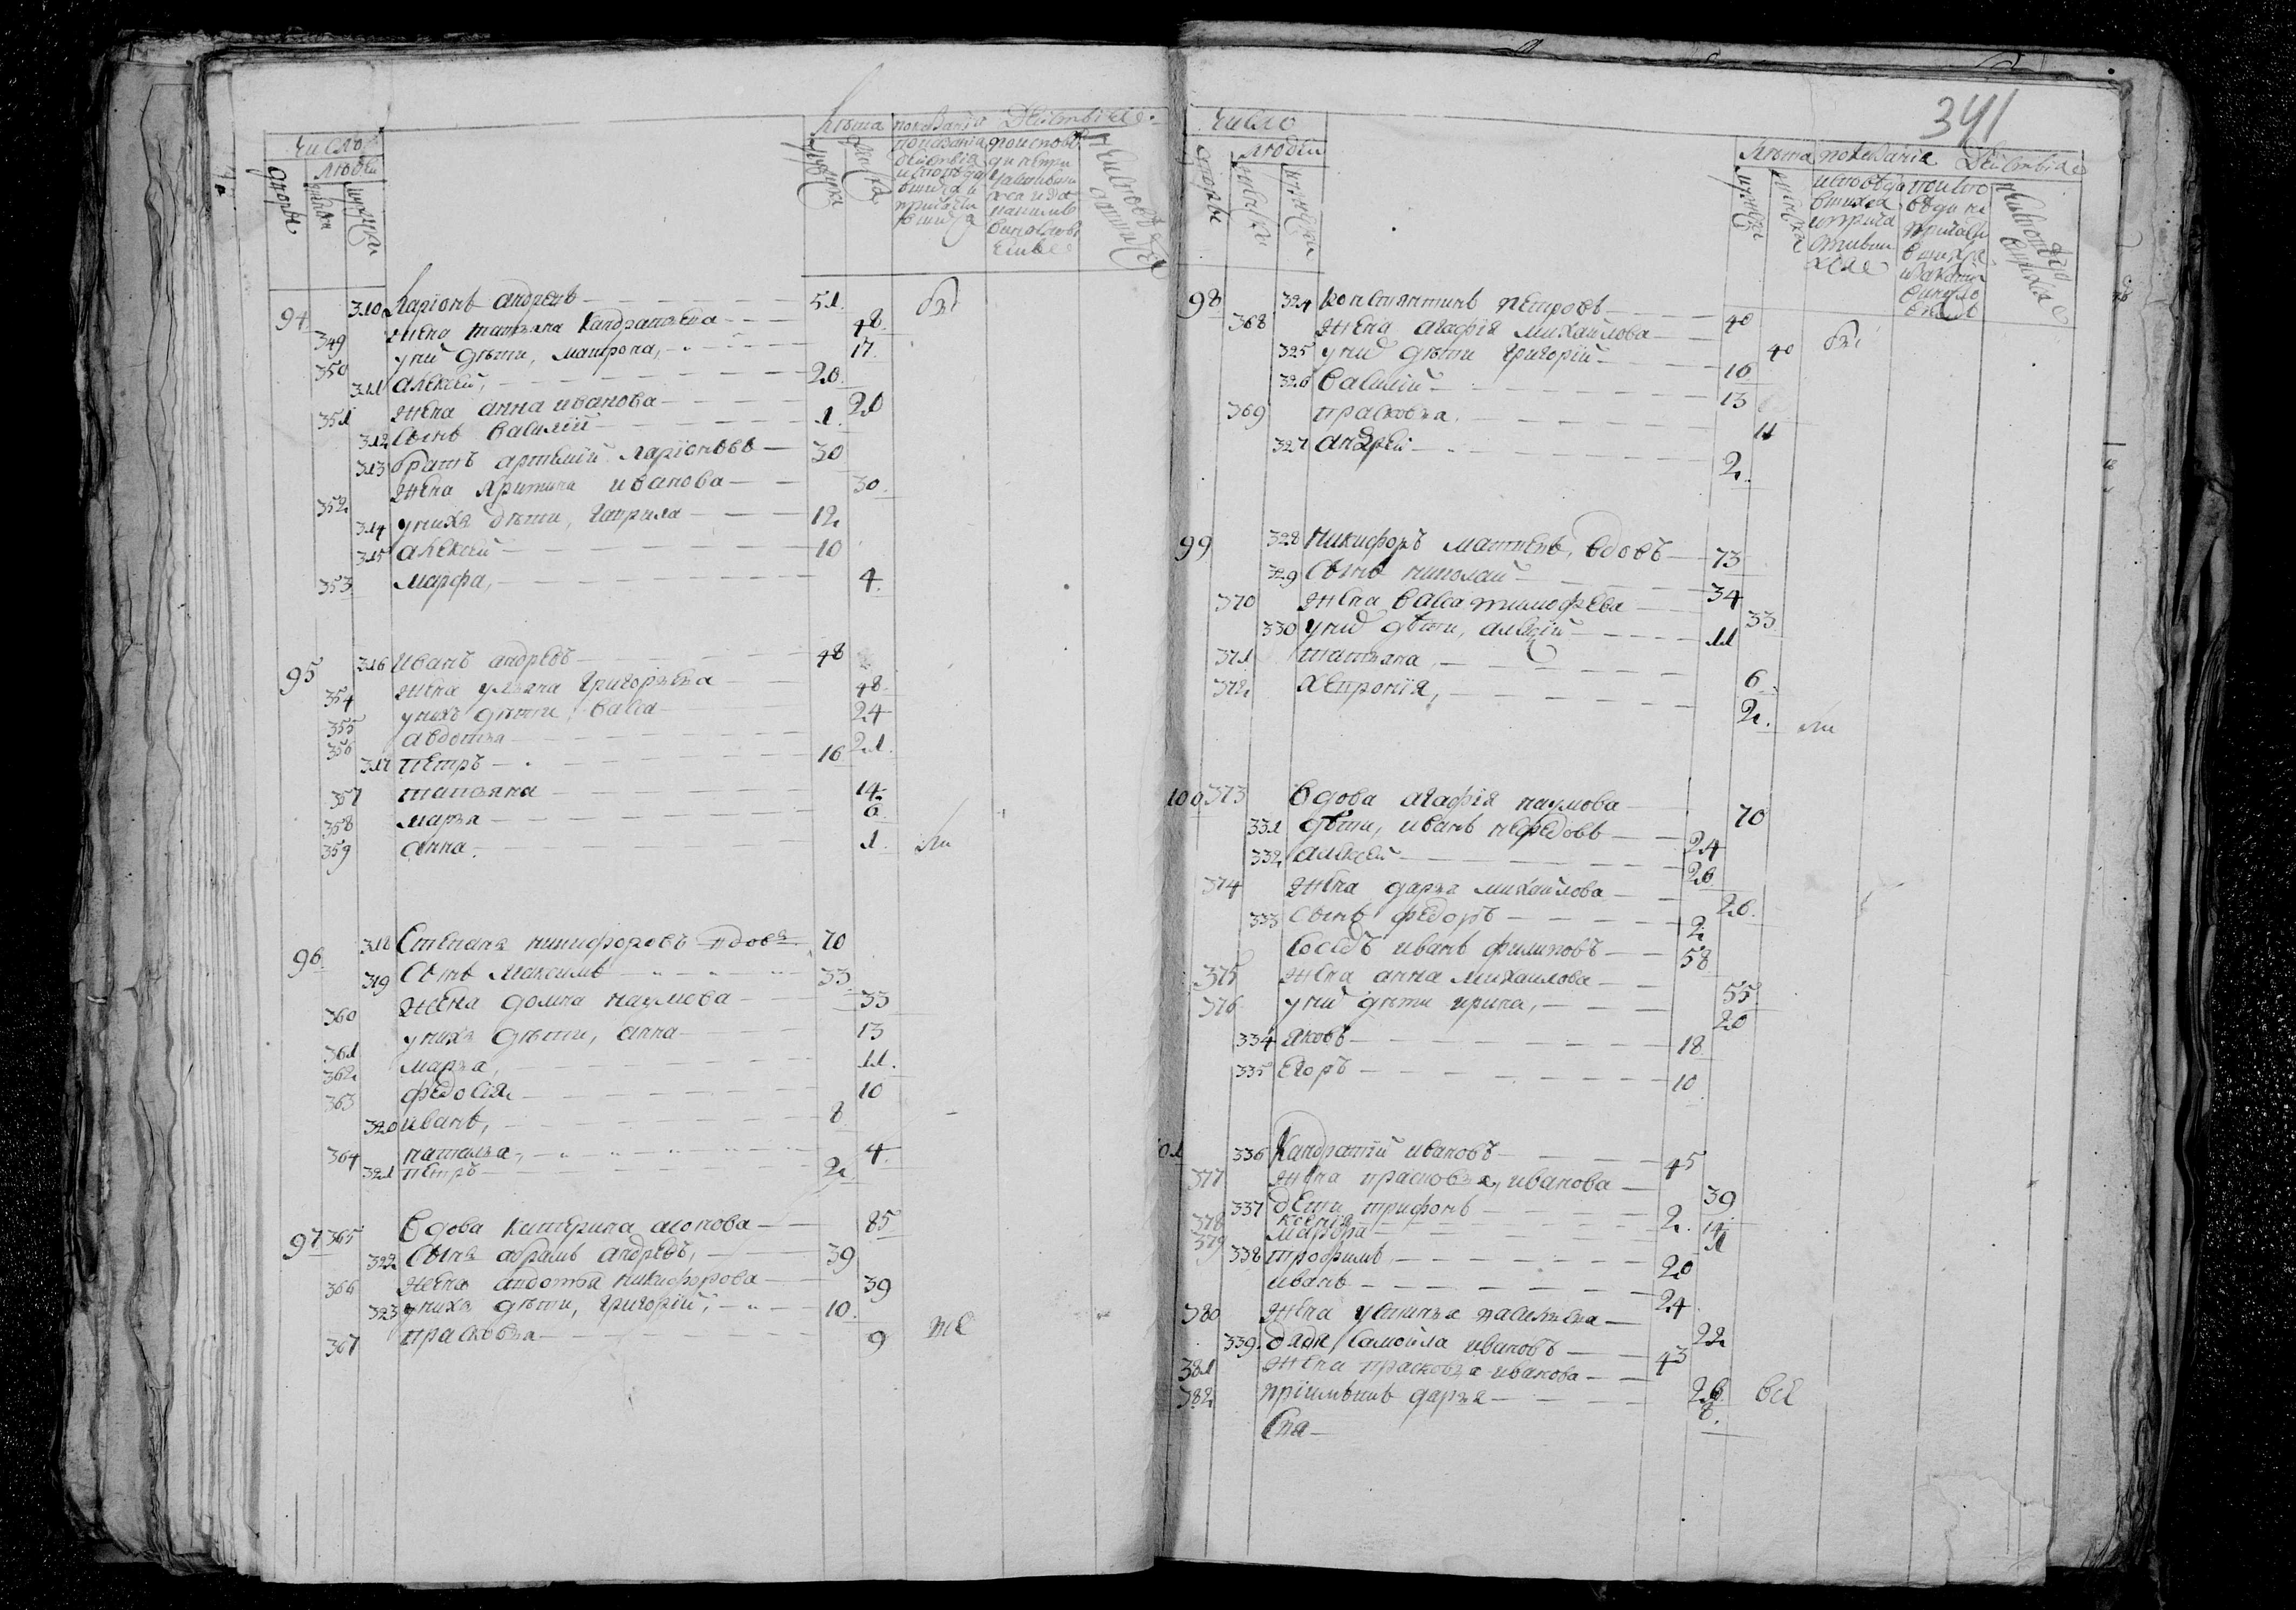 число
людей
дворы
женска
мужеска
Лѣта
мужеска
женска
94 310 Ларiонъ андреевъ 51
349 жена татьяна Кандратьева 48
350 у них дѣти, матрона, 17
311 алексей, 20
351 жена анна иванова 20
312 сынъ василiй 1
313 братъ артемiй ларiоновъ 30
352 жена христина иванова 30
314 у нихъ дѣти, гаврила 12
315 алексей 10
353 марфа, 4
95 316 иванъ андреевъ 48
354 жена ульяна григорьева 48
355 у нихъ дѣти, васса 24
356 авдотья 21
317 петръ 16
357 татьяна 14
358 марья 6
359 анна 1
96 318 Степанъ никифоровъ вдовъ 70
319 сынъ Максимъ 33
360 жена домна наумова 33
361 у нихъ дѣти, анна 13
362 марья, 11
363 федосiя 10
320 иванъ, 8
364 наталья, 4
321 петръ 2
97 365 вдова катерина 85
322 сынъ абрамъ андреевъ, 39
366 жена авдотья никифорова 39
323 у нихъ дѣти, григорiй, 10
367 прасковья 9
341
число
людей
дворы
Лѣта
мужеска
женска
98 324 Константинъ петровъ 40
368 жена агафiя михайлова 40
325 у них дѣти григорiй 16
326 василiй 13
369 прасковья 11
327 андрей 2
99 328 никифоръ матвеевъ, вдовъ 73
329 сынъ николай 34
370 жена васса тимофеева 33
330 у них дѣти, алексiй 11
371 татьяна, 6
372 хепронiя, 2
100 373 вдова агафiя наумова 70
331 дѣти, иванъ нефедовъ 24
332 алексей 26
374 жена дарья михайлова 26
333 сынъ федоръ 2
соседъ иванъ филиповъ 58
375 жена анна михаилова 55
376 у них дѣти ирина, 20
334 яковъ 18
335 егоръ 10
101 336 Кандратiй ивановъ 45
377 жена прасковья, иванова 39
337 дети трифонъ 2
378 ксенiя 14
379 марфа 11
338 трофимъ 20
иванъ 24
380 жена устинья васильева 22
339 дядя самойла ивановъ 43
381 жена прасковья иванова 26
382 прiимышъ дарья 8